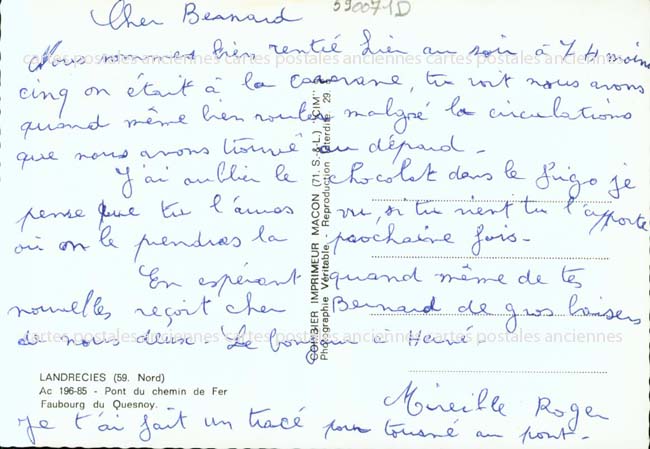 Cher Bernard
590071D
Nous sommes bien rentié hier au soir à 7 H moins
cartes postales anciennes cartes postales anciennes cartes postales anciennes
cinq on était à la caravane, tu voit nous avons
quand même bien roulés malgré la circulations
que nous avons trouvé au départ.
J'ai oublier le chocolat dans le frigo je
pense que tu l'auras vu, si tu vient tu l'apporte
où on le prendras la prochaine fois.
En espérant quand même de tes
nouvelles reçoit cher Bernard de gros baisers
cartes postales anciennes cartes postales anciennes cartes postales anciennes
de nous deux. Le bonjour à Hervé
Mireille Roger
LANDRECIES (59. Nord)
Ac 196-85 - Pont du chemin de Fer
Faubourg du Quesnoy.
Je t'ai fait un tracé pour tourné au pont.
COMBIER IMPRIMEUR MACON (71. S.-&-L.) "CIM"
Photographie Véritable. Reproduction Interdite. 29.